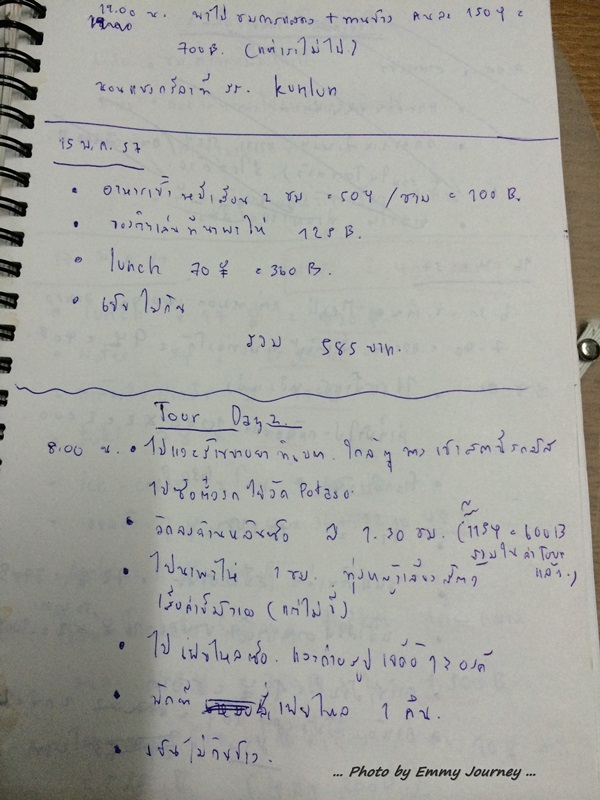 19.00 น. พาไป ชมการแสดง + ทานข้าว คนละ 150 ¥ =
700 B. (แต่เราไม่ไป)
นอนแชงกรีล่าที่ รร. kunlun
15 พ.ค. 57
• อาหารเช้า หมี่เสียน 2 ชม = 50 ¥ / ชาม = 100 B.
• ของกินเล่น ที่นาพาไห่ 125 B.
• lunch 70 ¥ = 360 B.
• เย็น ไม่กิน
รวม 585 บาท.
Tour Day 2
8.00 น. • ไปแวะร้านขายยา ทิเบต. ใกล้ๆ ทาง เข้าสถานีรถบัส
ไปซื้อตั๋วรถ ไปวัด Potaso
• วัดซงจ้านหลินซื่อ 1.30 ชม. (115 ¥ = 600 B
รวมในค่า Tour
แล้ว.)
• ไปนาพาไห่ 1 ชม. ทุ่งหญ้าเลี้ยงสัตว์
เสียค่าขี่ม้าเอง (แต่ไม่ขี่)
• ไป เฟยไหลซื่อ. แวะถ่ายรูป เจดีย์ 13 องค์
• พักที่ เฟยไหล 1 คืน.
• เย็นไม่กินข้าว.
... Photo by Emmy Journey ...